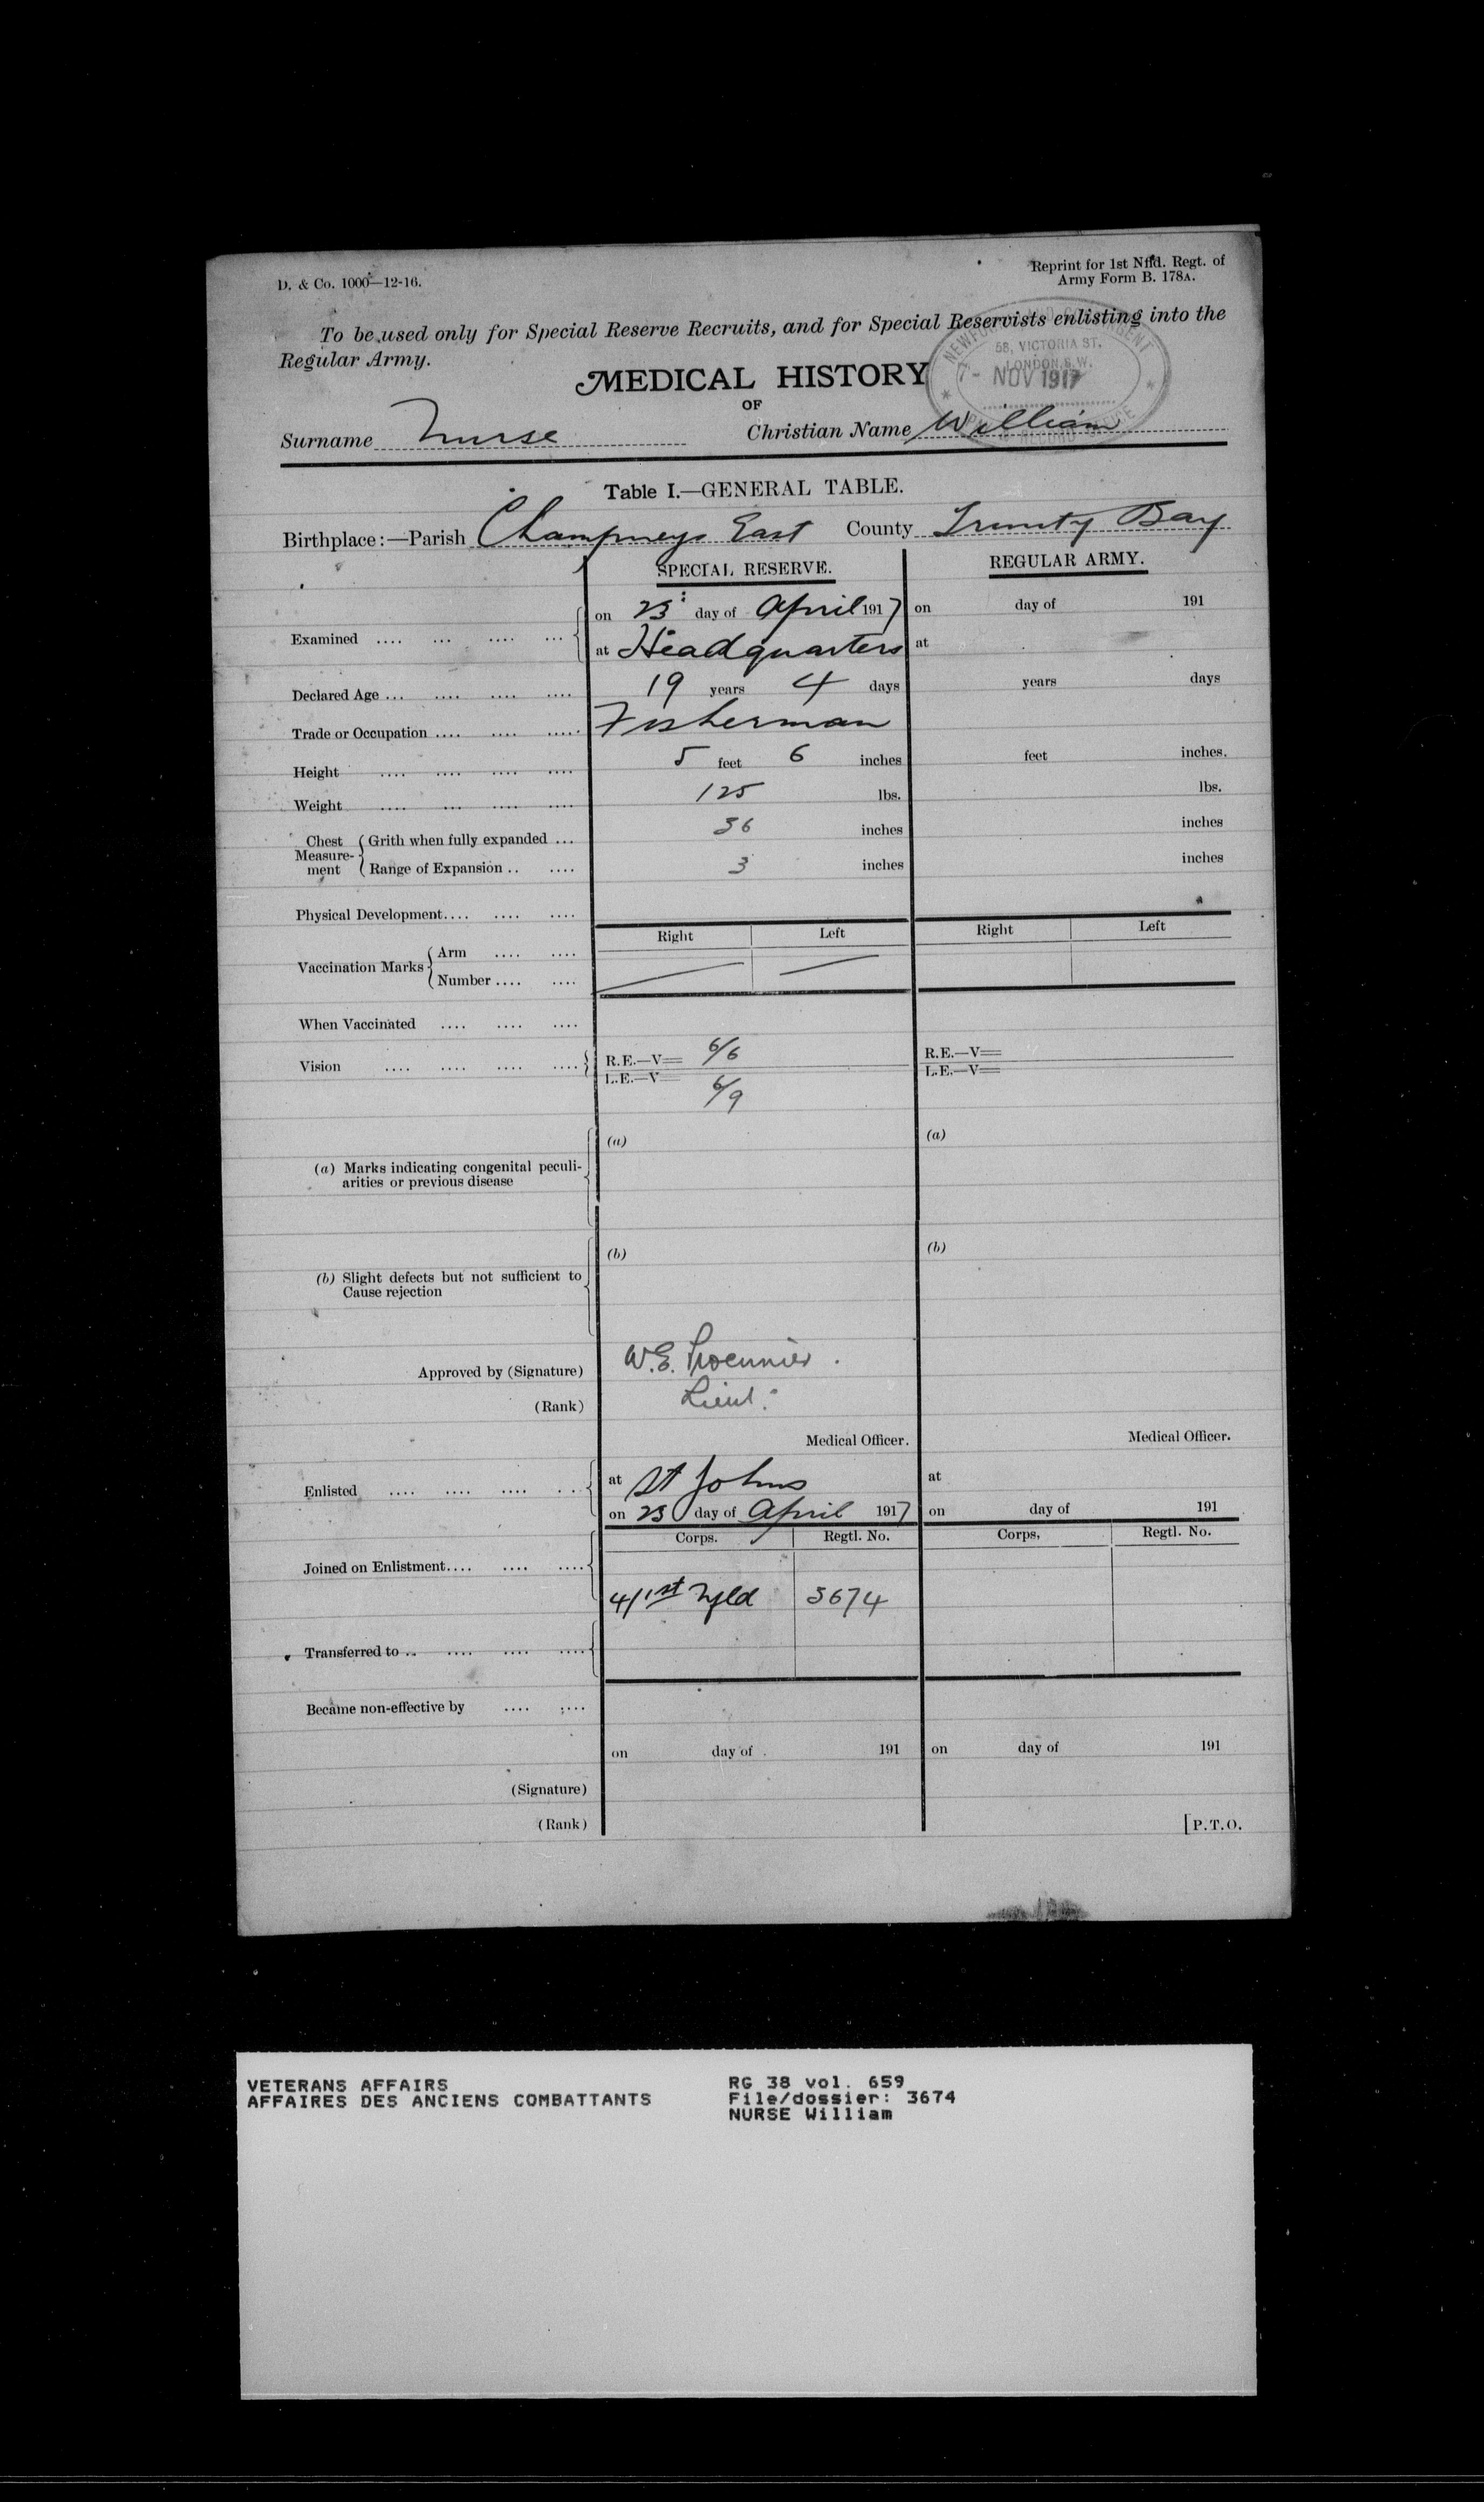 D. & Co. 1000—12-16.
Reprint for 1st Nfld. Regt. of
Army Form B. 178A.
To be used only for Special Reserve Recruits, and for Special Reservists enlisting into the
Regular Army.
NEWFOUNDLAND
58, VICTORIA ST.
LONDON, S.W.
7 - NOV 1917
MEDICAL HISTORY
OF
Surname Nurse Christian Name William
Table I.—GENERAL TABLE.
Birthplace:—Parish Champneys East County Trinity Bay
SPECIAL RESERVE. REGULAR ARMY.
Examined .... ... .... ... on 23 day of April 1917 on day of 191
at Headquarters at
Declared Age ... .... .... .... 19 years 4 days years days
Trade or Occupation .... .... .... Fisherman
Height .... .... .... .... 5 feet 6 inches feet inches.
Weight .... ... .... .... 125 lbs. lbs.
Chest Measurement Grith when fully expanded ... 36 inches inches
Range of Expansion .. .... 3 inches inches
Physical Development.... .... ....
Right Left Right Left
Vaccination Marks Arm .... ....
Number .... ....
When Vaccinated .... .... ....
Vision .... .... .... .... R.E.—V= 6/6 R.E.—V=
L.E.—V= 6/9 L.E.—V=
(a) (a)
(a) Marks indicating congenital peculi-
arities or previous disease
(b) (b)
(b) Slight defects but not sufficient to
Cause rejection
Approved by (Signature) W.E.
(Rank) Lieut.
Medical Officer. Medical Officer.
Enlisted .... .... .... .. at St Johns at
on 23 day of April 1917 on day of 191
Corps. Regtl. No. Corps, Regtl. No.
Joined on Enlistment.... .... ....
1st Nfld 3674
Transferred to .. .... .... ....
Became non-effective by .... ....
on day of 191 on day of 191
(Signature)
(Rank)
[P.T.O.
VETERANS AFFAIRS RG 38 vol. 659
AFFAIRES DES ANCIENS COMBATTANTS File/dossier: 3674
NURSE William